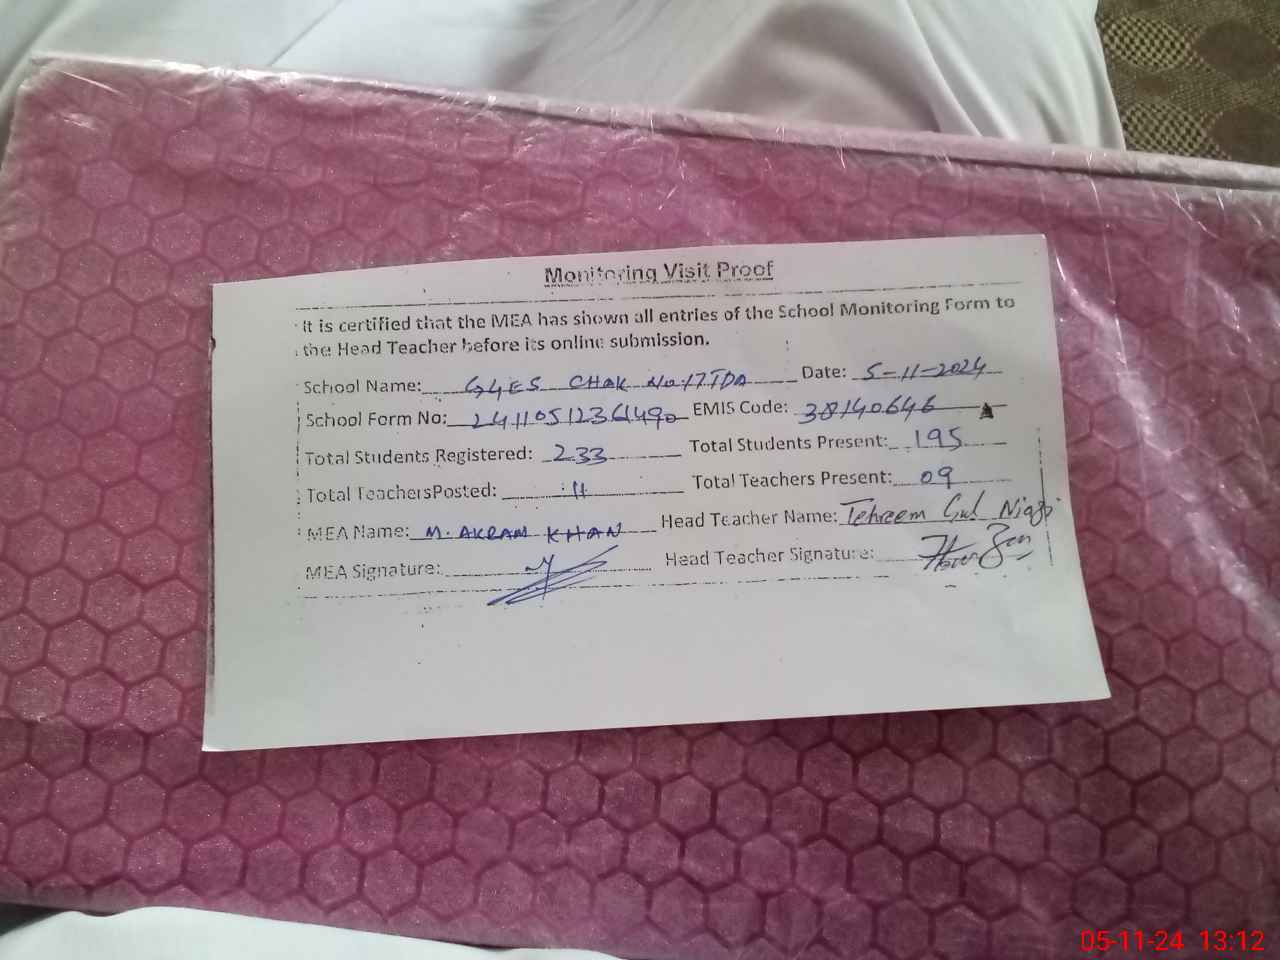 Monitoring Visit Proof
It is certified that the MEA has shown all entries of the School Monitoring Form to
the Head Teacher before its online submission.
School Name: GGES CHAK No.17TDA Date: 5-11-2024
School Form No: 2411051236490 EMIS Code: 38140646
Total Students Registered: 233 Total Students Present: 195
Total TeachersPosted: 11 Total Teachers Present: 09
MEA Name: M. AKRAM KHAN Head Teacher Name: Tehreem Gul Niazi
MEA Signature: Head Teacher Signature:
05-11-24 13:12